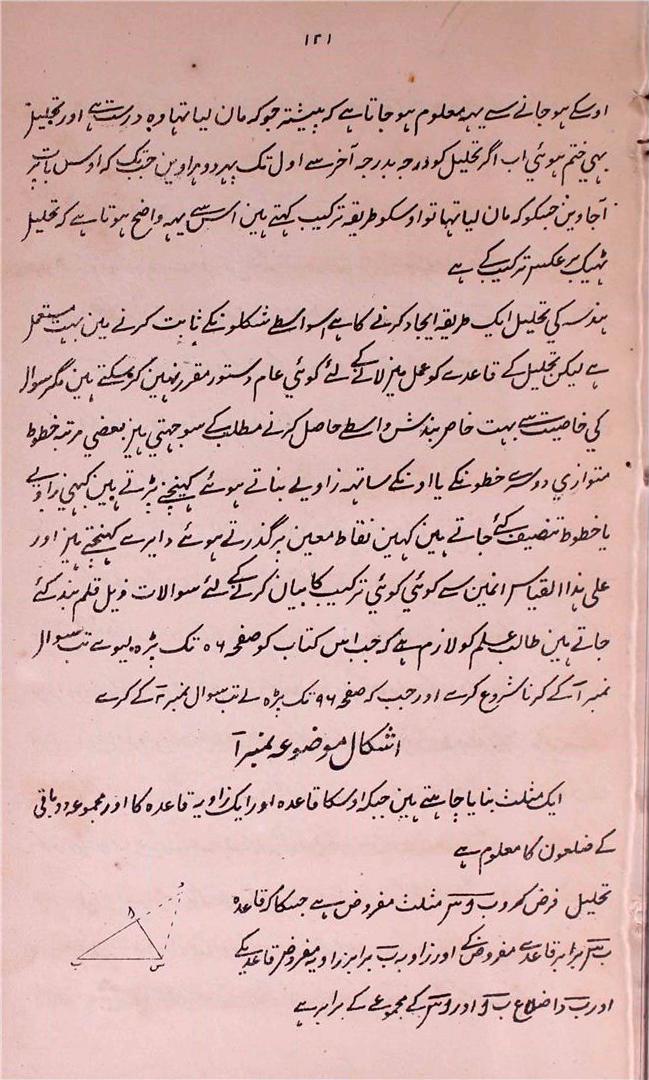 ۱۲۱
اوسکے ہو جانے سے یہہ معلوم ہو جاتا ہے کہ پیشتر جو کہ مان لیا تہا وہ درست ہے اور تحلیل
بہی ختم ہوئی اب اگر تحلیل کو درجہ بدرجہ آخر سے اول تک پہر دوہراوین جب تک کہ اوس بات پر
آجاوین جسکو کہ مان لیا تہا تو اوسکو طریقہ ترکیب کہتے ہین اس سے یہہ واضح ہوتا ہے کہ تحلیل
ٹہیک برعکس ترکیب کے ہے
ہندسہ کی تحلیل ایک طریقہ ایجاد کرنے کا ہے اسواسطے شکلونکے ثابت کرنے مین بہت مستعمل
ہے لیکن تحلیل کے قاعدے کو عمل مین لانے کے لئے کوئی عام دستور مقرر نہین کر سکتے ہین مگر سوال
کی خاصیت سے بہت خاص بندش واسطے حاصل کرنے مطلب کے سوجہتی ہین بعضی مرتبہ خطوط
متوازی دوسرے خطونکے یا اونکے ساتہہ زاویے بناتے ہوئے کہینچنے پڑتے ہین کبہی زاویے
یا خطوط تنصیف کئے جاتے ہین کہین نقاط معین پر گذرتے ہوئے دایرے کہنچتے ہین اور
علی ہذا القیاس انمین سے کوئی کوئی ترکیب کا بیان کرنے کے لئے سوالات ذیل قلم بند کئے
جاتے ہین طالب علم کو لازم ہے کہ جب اس کتاب کو صفحہ ۵۶ تک پڑہ لیوے تب سوال
نمبر ۱ کے کرنا شروع کرے اور جب کہ صفحہ ۹۶ تک پڑہ لے تب سوال نمبر ۲ کے کرے
اشکال موضوعہ نمبر ۱
ایک مثلث بنایا چاہتے ہین جبکہ اوسکا قاعدہ اور ایک زاویہ قاعدہ کا اور مجموعہ دو باقی
کے ضلعون کا معلوم ہے
تحلیل فرض کرو ب ا س مثلث مفروض ہے جسکا کہ قاعدہ
ب س برابر قاعدے مفروض کے اور زاویہ ب برابر زاویہ مفروض قاعدیکے
اور ب د اضلاع ب ا اور ا س کے مجموعے کے برابر ہے
د
ا
ب س